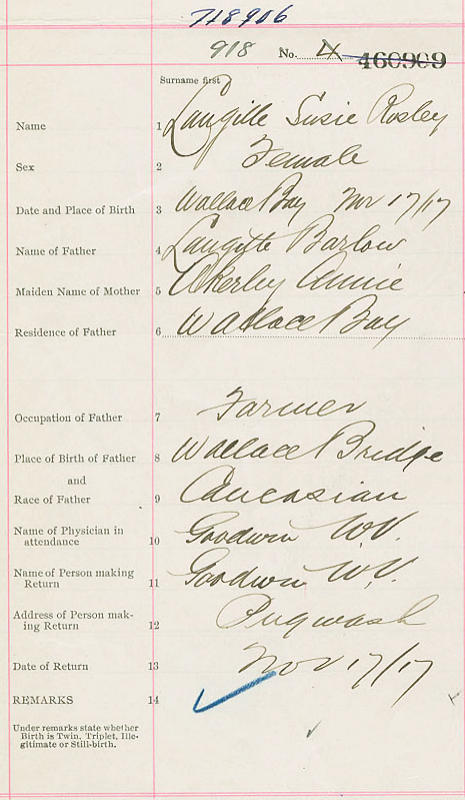 718906
918 No. 4 460909
Surname first
Name 1 Langille Susie Rosley
Sex 2 Female
Date and Place of Birth 3 Wallace Bay Nov 17/17
Name of Father 4 Langille Barlow
Maiden Name of Mother 5 Akerley Annie
Residence of Father 6 Wallace Bay
Occupation of Father 7 Farmer
Place of Birth of Father 8 Wallace Bridge
and
Race of Father 9 Caucasian
Name of Physician in
attendance 10 Goodwin W.V.
Name of Person making
Return 11 Goodwin W.V.
Address of Person mak-
ing Return 12 Pugwash
Date of Return 13 Nov 17/17
REMARKS 14
Under remarks state whether
Birth is Twin, Triplet, Ille-
gitimate or Still-birth.